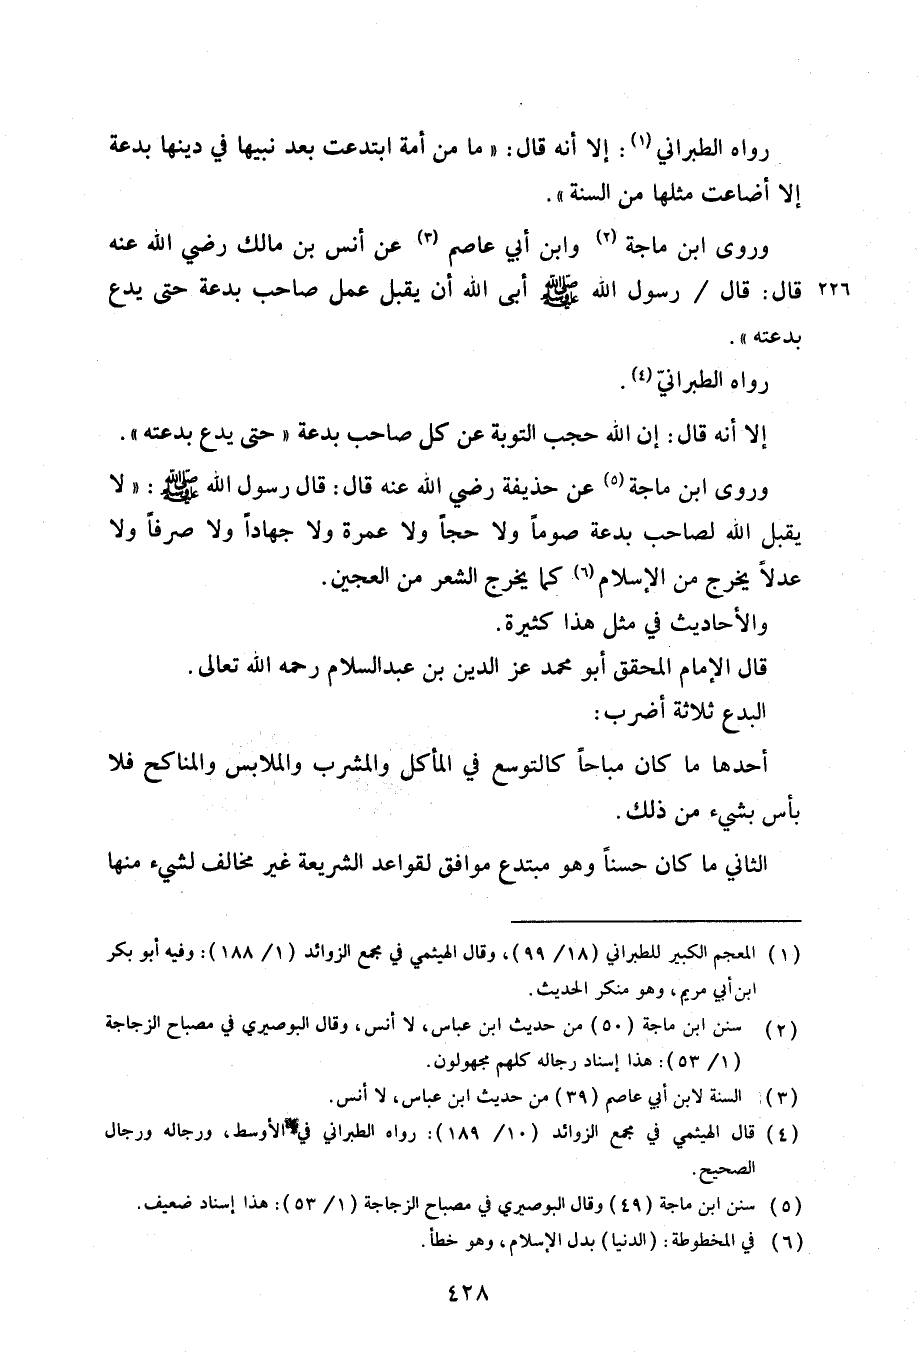 رواه الطبراني(١) : إلا أنه قال : « ما من أمة ابتدعت بعد نبيها في دينها بدعة
إلا أضاعت مثلها من السنة » .
وروى ابن ماجة (٢) وابن أبي عاصم (٣) عن أنس بن مالك رضي الله عنه
٢٢٦ قال : قال / رسول الله ﷺ أبى الله أن يقبل عمل صاحب بدعة حتى يدع
بدعته » .
رواه الطبرانيّ (٤) .
إلا أنه قال : إن الله حجب التوبة عن كل صاحب بدعة « حتى يدع بدعته » .
وروى ابن ماجة(٥) عن حذيفة رضي الله عنه قال : قال رسول الله ﷺ : « لا
يقبل الله لصاحب بدعة صوماً ولا حجاً ولا عمرة ولا جهاداً ولا صرفاً ولا
عدلاً يخرج من الإسلام(٦) كما يخرج الشعر من العجين .
والأحاديث في مثل هذا كثيرة .
قال الإمام المحقق أبو محمد عز الدين بن عبدالسلام رحمه الله تعالى .
البدع ثلاثة أضرب :
أحدها ما كان مباحاً كالتوسع في المأكل والمشرب والملابس والمناكح فلا
بأس بشيء من ذلك .
الثاني ما كان حسناً وهو مبتدع موافق لقواعد الشريعة غير مخالف لشيء منها
(١) المعجم الكبير للطبراني (١٨/ ٩٩) ، وقال الهيثمي في مجمع الزوائد (١/ ١٨٨) : وفيه أبو بكر
ابن أبي مريم ، وهو منكر الحديث .
(٢) سنن ابن ماجة (٥٠) من حديث ابن عباس ، لا أنس ، وقال البوصيري في مصباح الزجاجة
(١/ ٥٣) : هذا إسناد رجاله كلهم مجهولون .
(٣) السنة لابن أبي عاصم (٣٩) من حديث ابن عباس ، لا أنس .
(٤) قال الهيثمي في مجمع الزوائد (١٠/ ١٨٩) : رواه الطبراني في الأوسط ، ورجاله ورجال
الصحيح .
(٥) سنن ابن ماجة (٤٩) وقال البوصيري في مصباح الزجاجة (١/ ٥٣) : هذا إسناد ضعيف .
(٦) في المخطوطة : (الدنيا) بدل الإسلام ، وهو خطأ .
٤٢٨